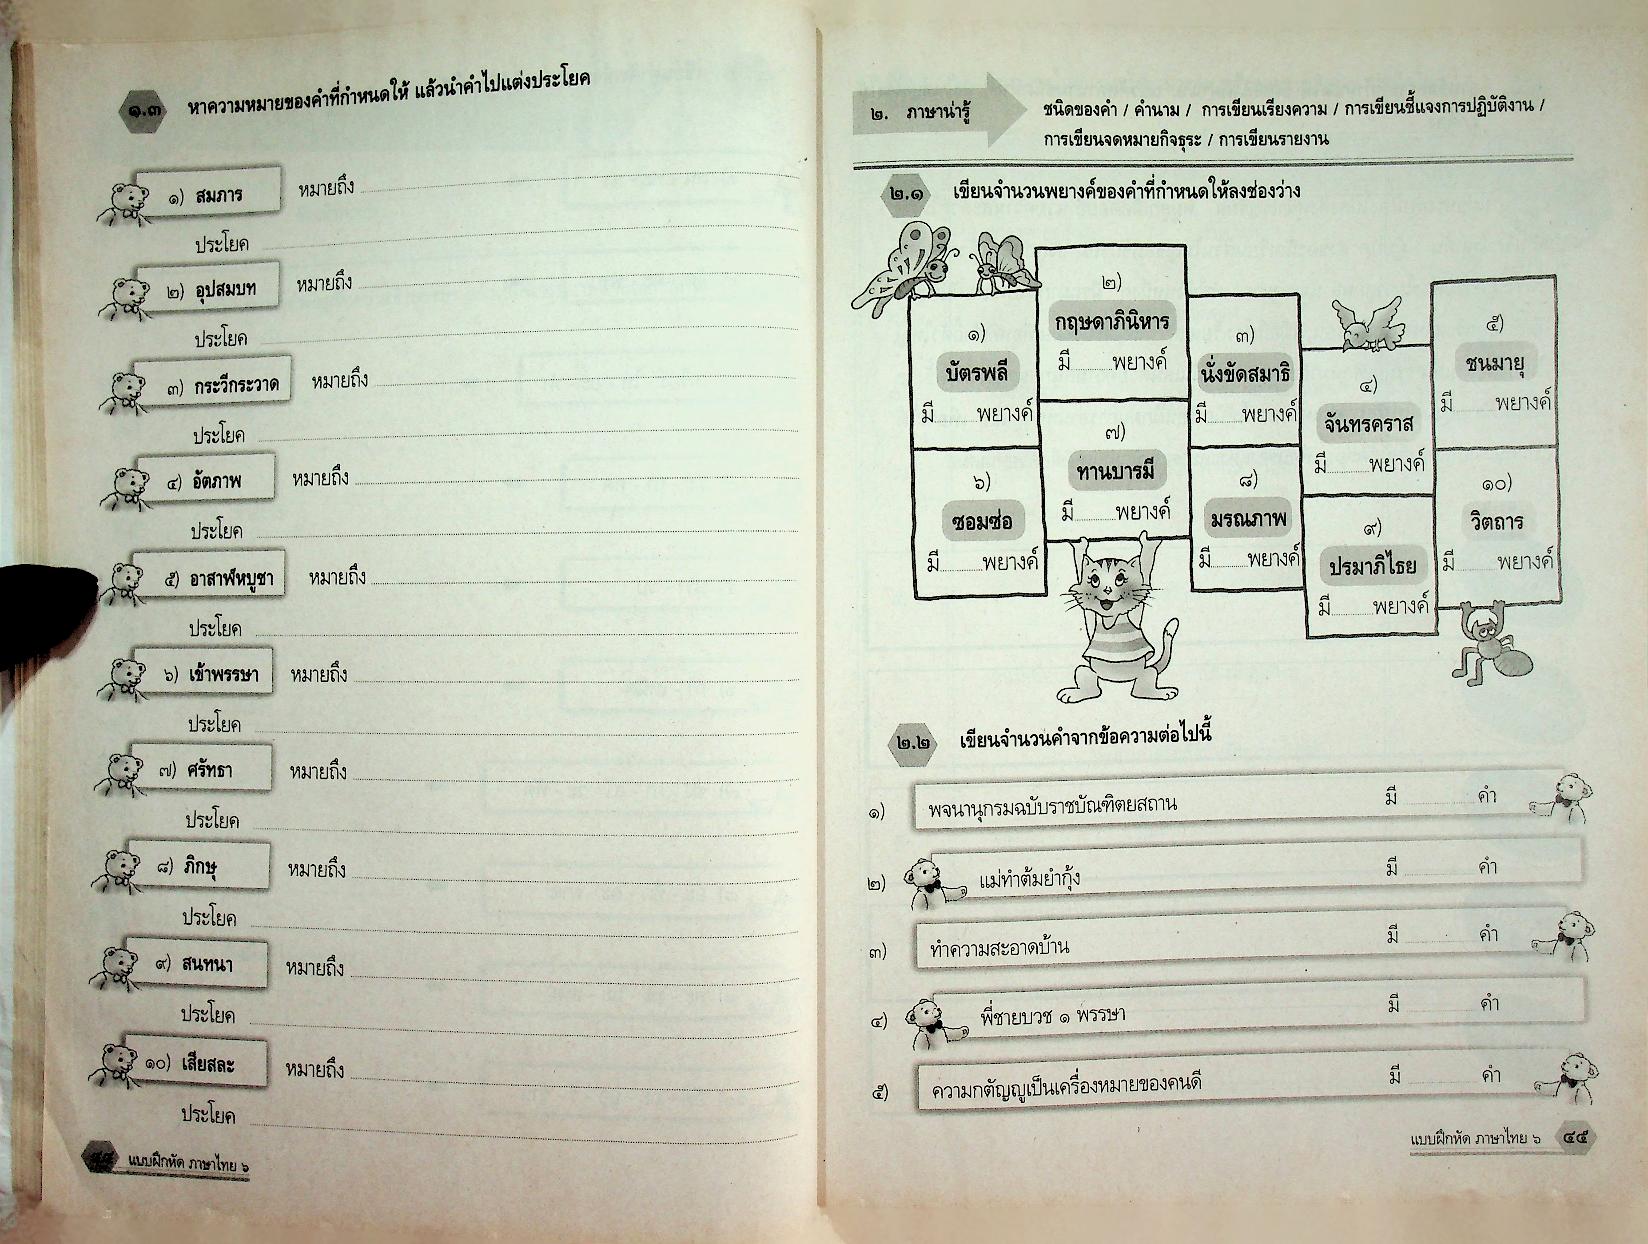 ๑.๓ หาความหมายของคำที่กำหนดให้ แล้วนำคำไปแต่งประโยค
๑) สมภาร หมายถึง
ประโยค
๒) อุปสมบท หมายถึง
ประโยค
๓) กระวีกระวาด หมายถึง
ประโยค
๔) อัตภาพ หมายถึง
ประโยค
๕) อาสาฬหบูชา หมายถึง
ประโยค
๖) เข้าพรรษา หมายถึง
ประโยค
๗) ศรัทธา หมายถึง
ประโยค
๘) ภิกษุ หมายถึง
ประโยค
๙) สนทนา หมายถึง
ประโยค
๑๐) เสียสละ หมายถึง
ประโยค
แบบฝึกหัด ภาษาไทย ๖
๒. ภาษาน่ารู้
ชนิดของคำ / คำนาม / การเขียนเรียงความ / การเขียนชี้แจงการปฏิบัติงาน /
การเขียนจดหมายกิจธุระ / การเขียนรายงาน
๒.๑ เขียนจำนวนพยางค์ของคำที่กำหนดให้ลงช่องว่าง
๑)
บัตรพลี
มี ........ พยางค์
๒)
กฤษดาภินิหาร
มี ........ พยางค์
๓)
นั่งขัดสมาธิ
มี ........ พยางค์
๔)
จันทรคราส
มี ........ พยางค์
๕)
ชนมายุ
มี ........ พยางค์
๖)
ซอมซ่อ
มี ........ พยางค์
๗)
ทานบารมี
มี ........ พยางค์
๘)
มรณภาพ
มี ........ พยางค์
๙)
ปรมาภิไธย
มี ........ พยางค์
๑๐)
วิตถาร
มี ........ พยางค์
๒.๒ เขียนจำนวนคำจากข้อความต่อไปนี้
๑) พจนานุกรมฉบับราชบัณฑิตยสถาน มี ........ คำ
๒) แม่ทำต้มยำกุ้ง มี ........ คำ
๓) ทำความสะอาดบ้าน มี ........ คำ
๔) พี่ชายบวช ๑ พรรษา มี ........ คำ
๕) ความกตัญญูเป็นเครื่องหมายของคนดี มี ........ คำ
แบบฝึกหัด ภาษาไทย ๖ ๔๕